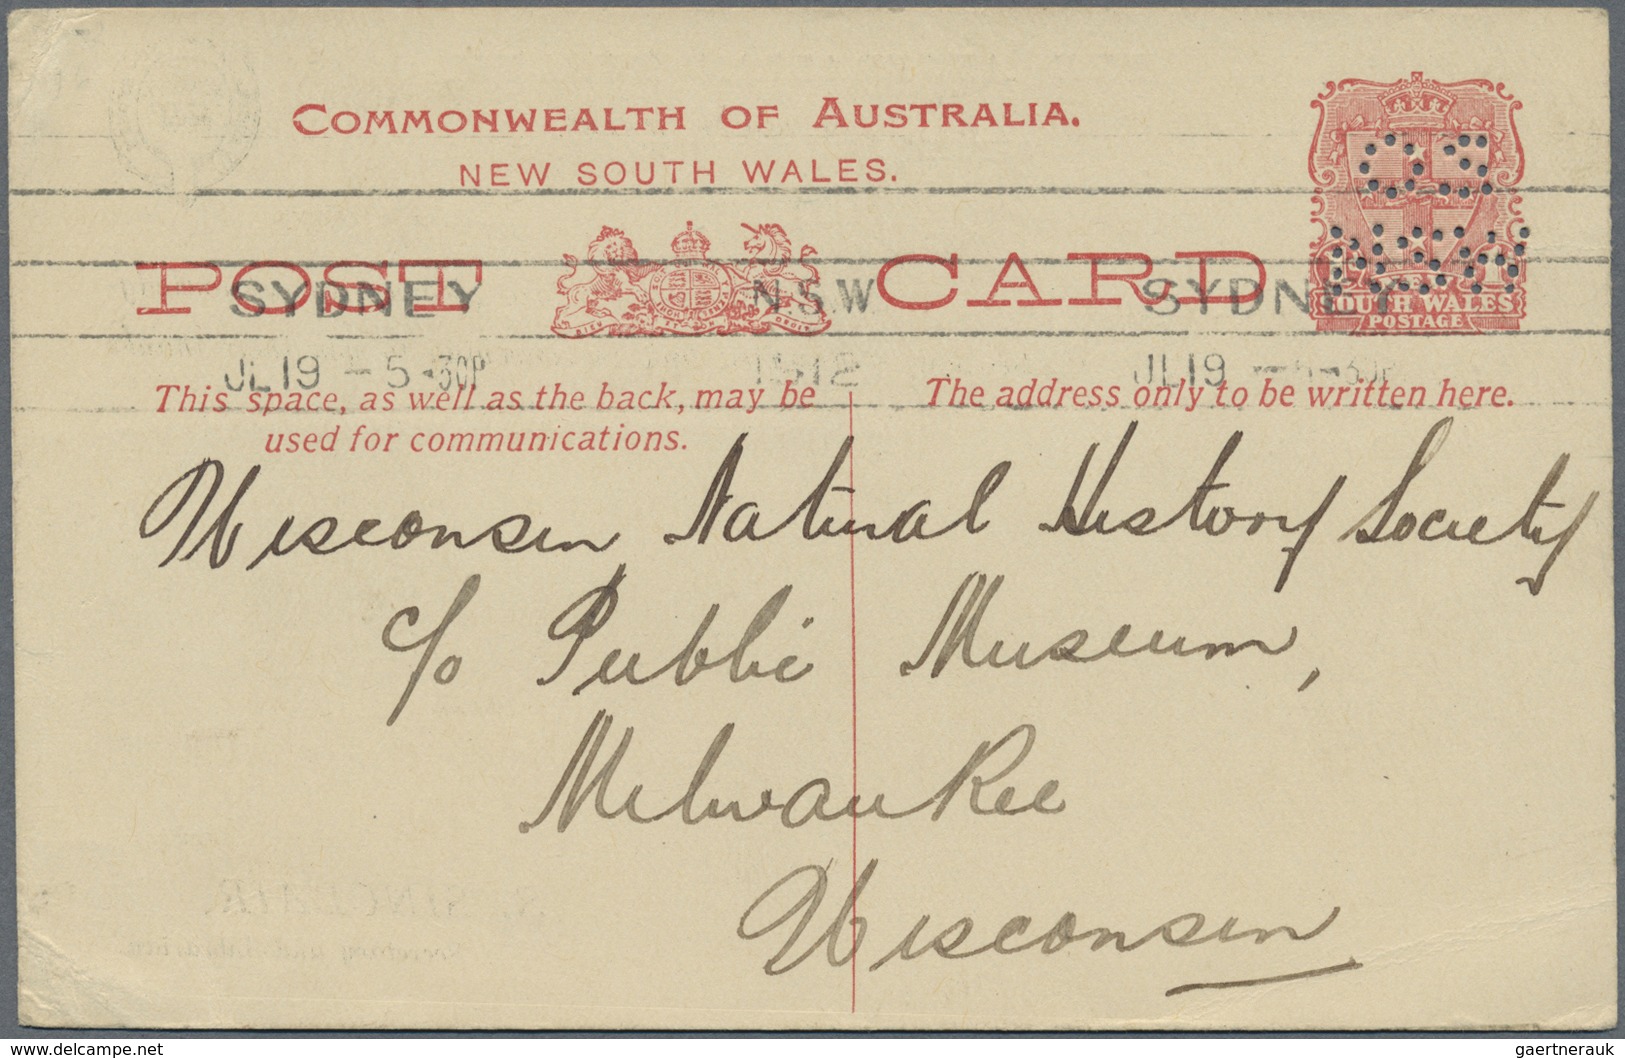 COMMONWEALTH OF AUSTRALIA.
NEW SOUTH WALES.
POST CARD
OS
NSW
SOUTH WALES
POSTAGE
SYDNEY N.S.W SYDNEY
JL 19 - 5-30P 1912 JL 19
This space, as well as the back, may be used for communications.
The address only to be written here.
Wisconsin Natural History Society
c/o Public Museum,
Milwaukee
Wisconsin
www.delcampe.net
gaertnerauk